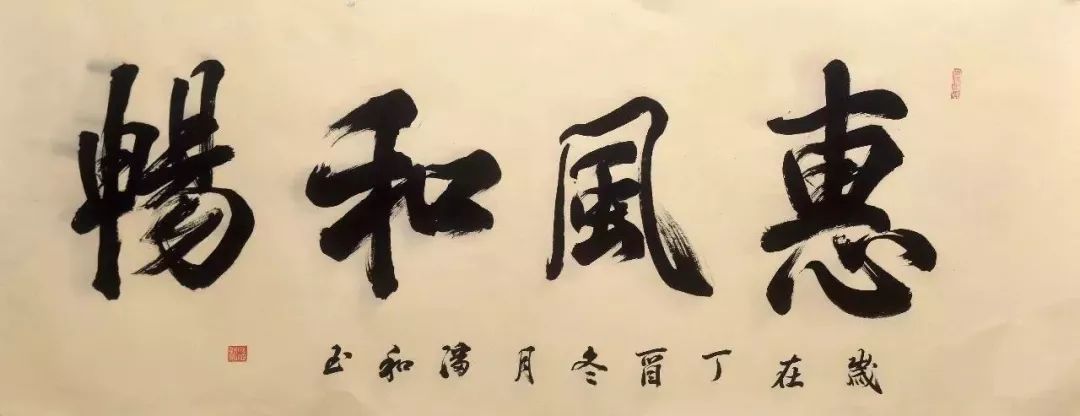 惠風和暢
歲在丁酉冬月潘和玉